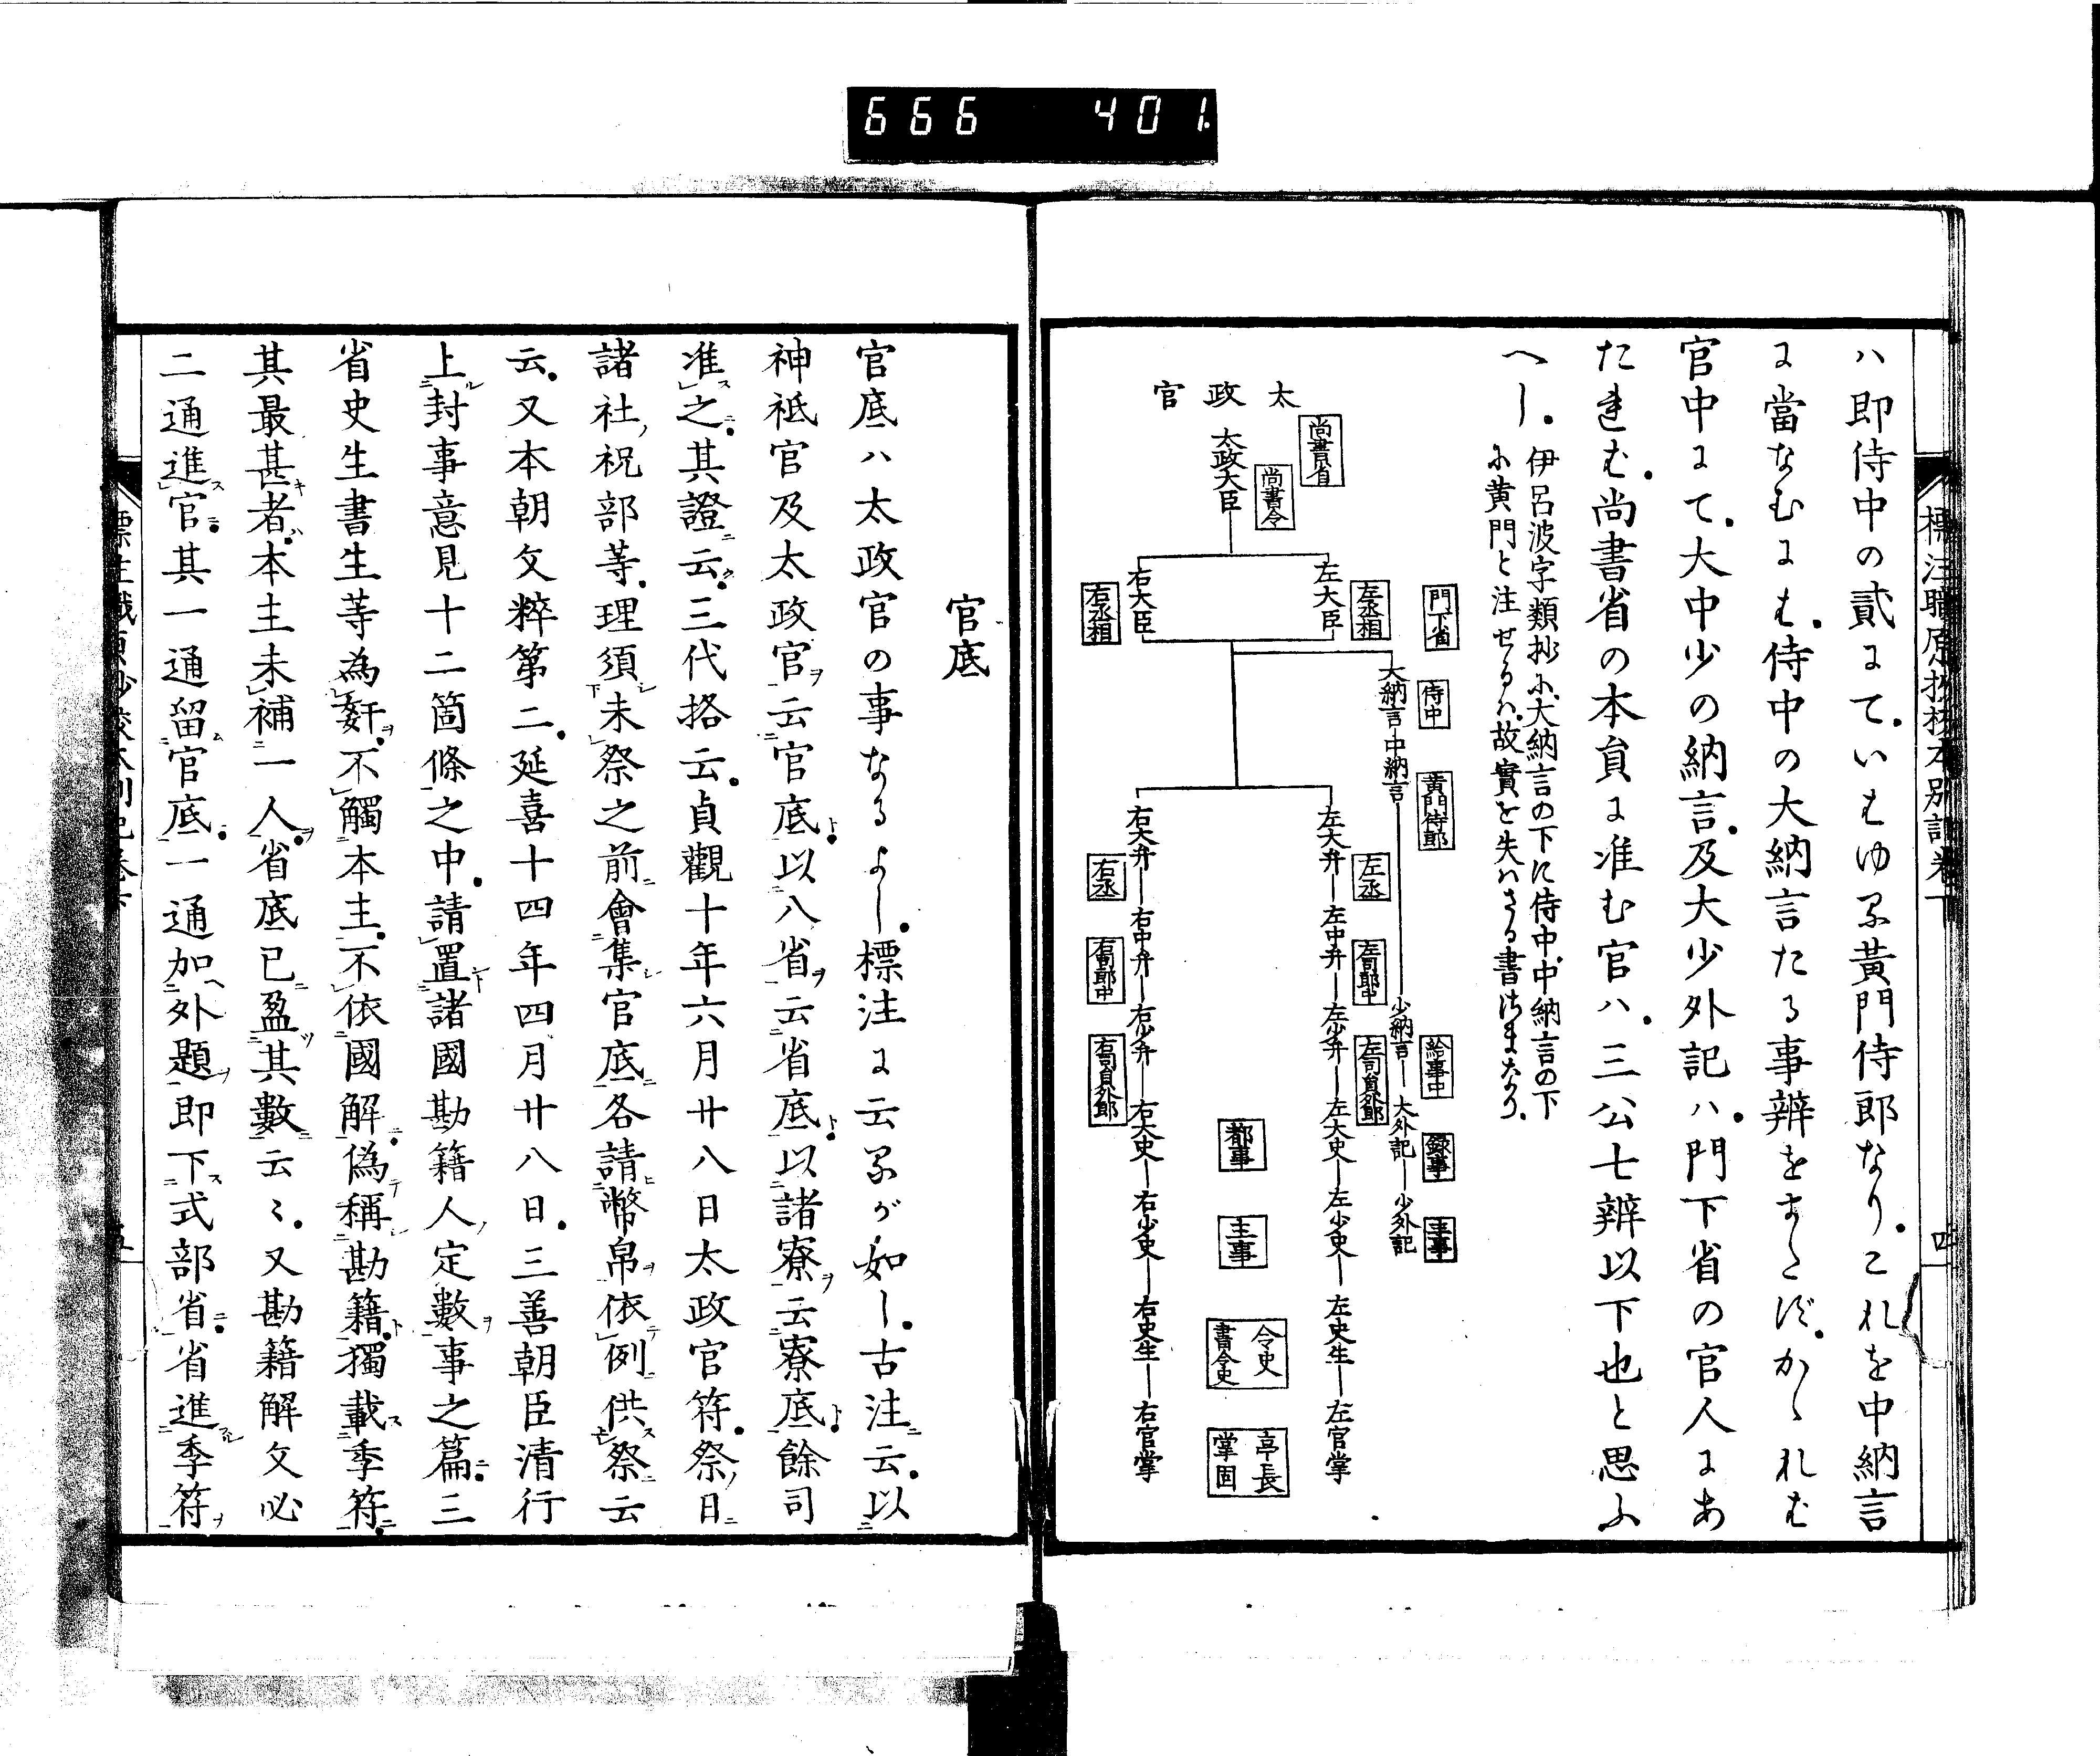 666 401.
標注職原抄校本別記卷下
四
ハ即侍中の貳にて。いはゆる黄門侍郎なり。これを中納言
に當なばには。侍中の大納言たる事辨をまたず。かゝれば
官中にて。大中少の納言。及大少外記ハ。門下省の官人にあ
たれば。尚書省の本員に准む官ハ。三公七辨以下也と思ふ
へし。
伊呂波字類抄に、大納言の下に侍中。中納言の下
に黄門と注せるハ。故實を失ハざる書ざまなり。
太政官
尚書省
太政大臣
尚書令
左大臣
左丞相
右大臣
右丞相
門下省
大納言―中納言―少納言―大外記―少外記
侍中
黄門侍郎
給事中
録事
主事
左大弁―左中弁―左少弁―左大史―左少史―左史生―左官掌
左丞
左司郎中
左司員外郎
右大弁―右中弁―右少弁―右大史―右少史―右史生―右官掌
右丞
右司郎中
右司員外郎
都事
主事
令史
書令史
亭長
掌固
官底
官底ハ太政官の事なるよし。標注に云るが如し。古注云。以
神祇官及太政官云官底。以八省云省底。以諸寮云寮底。餘司
准之。其證云。三代格云。貞觀十年六月廿八日太政官符。祭日
諸社祝部等。理須未祭之前會集官底各請幣帛依例供祭云
云。又本朝文粹第二。延喜十四年四月廿八日。三善朝臣清行
上封事意見十二箇條之中。請置諸國勘籍人定數事之篇。三
省史生書生等為姧。不觸本主。不依國解。偽稱勘籍。獨載季符。
其最甚者。本主未補一人。省底已盈其數云〻。又勘籍解文必
二通進官。其一通留官底。一通加外題即下式部省。省進季符